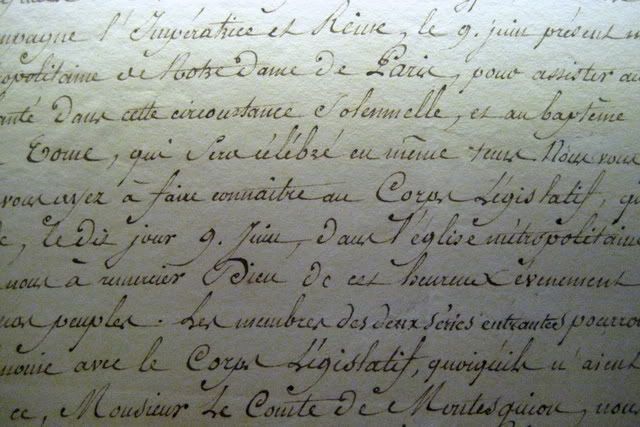 mpagne l'Impératrice et Reine, le 9. juin présent m
opolitaine de Notre Dame de Paris, pour assister au
anté dans cette circonstance Solennelle, et au baptême
Rome, qui Sera célébré en même tems. Nous vous
vous ayez à faire connaître au Corps Législatif, qu
e, le dit jour 9. Juin, dans l'église métropolitaine
nous à remercier Dieu de cet heureux évènement
nos peuples. Les membres des deux séries entrantes pourro
monie avec le Corps Législatif, quoiqu'ils n'aient
ce, Monsieur Le Comte de Montesquiou, nous